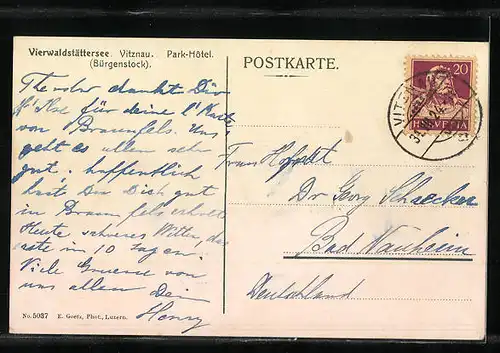 Vierwaldstättersee Vitznau. Park-Hôtel.
(Bürgenstock).
POSTKARTE.
20
HELVETIA
VITZNAU
dankt Dir
Ilse für deine l. Karte
von Braunfels. Uns
geht es allen sehr
gut, hoffentlich
hast Du Dich gut
in Braunfels erholt
Heute schönes Wetter, das
erste in 10 Tagen.
Viele Gruesse von
uns allen Dein
Henry
Frau
Dr Georg
Bad Nauheim
Deutschland
No. 5037 E. Goetz, Phot., Luzern.